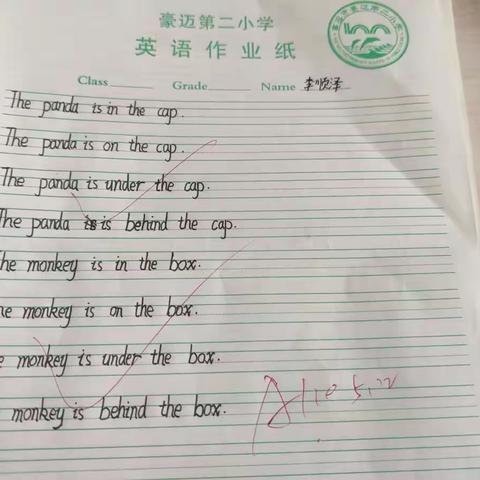 豪迈第二小学
英语作业纸
Class Grade Name 李顺泽
The panda is in the cap.
The panda is on the cap.
The panda is under the cap.
The panda is behind the cap.
The monkey is in the box.
he monkey is on the box.
monkey is under the box.
monkey is behind the box.